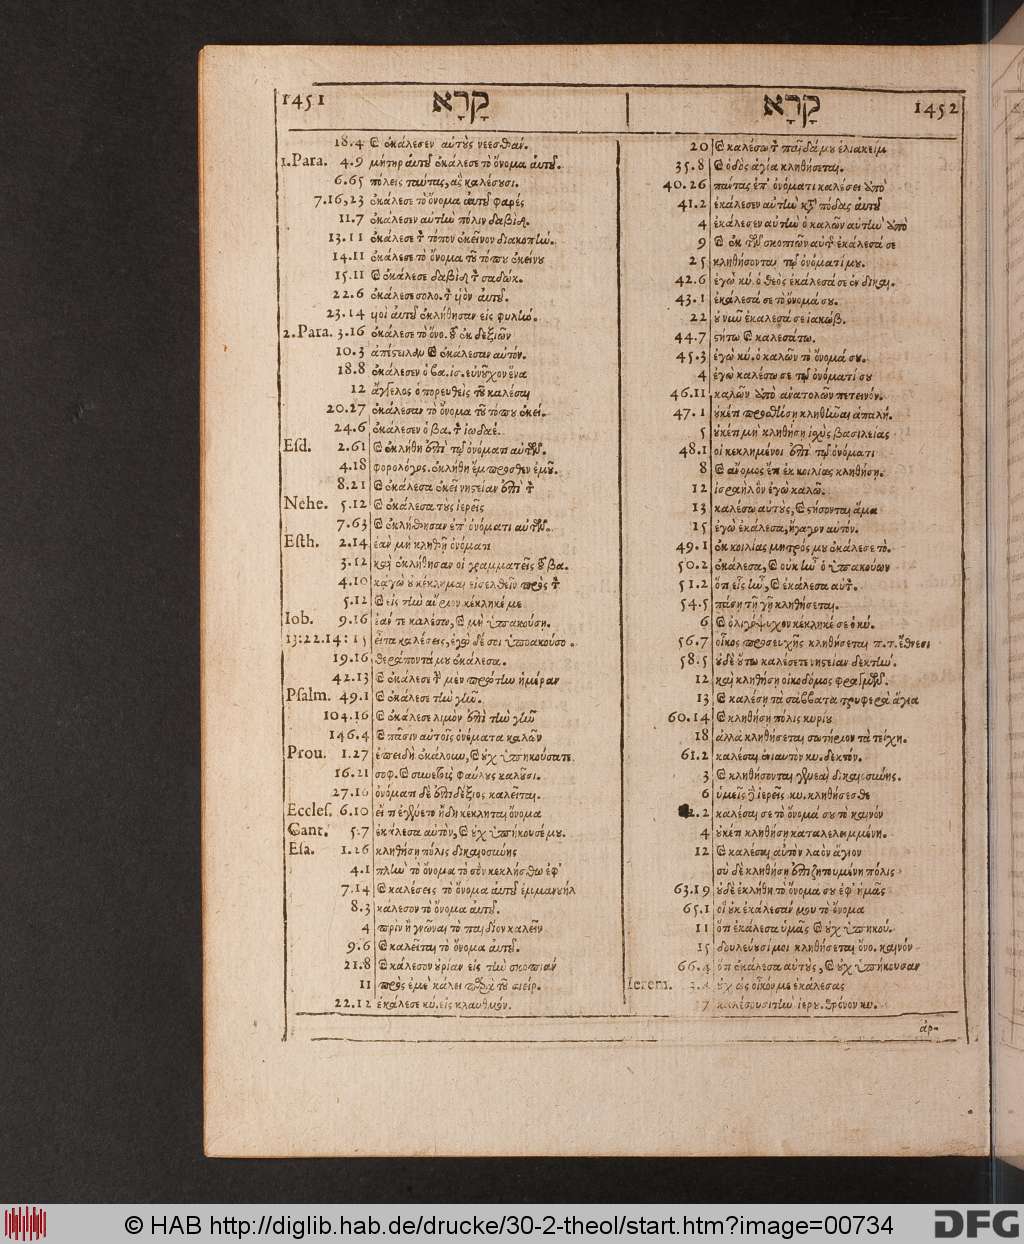 1451 קָרָא
18.4 & ἐκάλεσεν αὐτὸς νεεσθάν.
1.Para. 4.9 μήτηρ αὐτοῦ ἐκάλεσε τὸ ὄνομα αὐτοῦ.
6.65 πόλεις ταύτας, ἃς καλέσουσι.
7.16,23 ἐκάλεσε τὸ ὄνομα αὐτοῦ φαρές
11.7 ἐκάλεσεν αὐτὴν πόλιν δαβίδ.
13.11 ἐκάλεσε τ̀ τόπον ἐκεῖνον διακοπὴν.
14.11 ἐκάλεσε τὸ ὄνομα τοῦ τόπου ἐκείνου
15.11 & ἐκάλεσε δαβὶδ τ̀ σαδώκ.
22.6 ἐκάλεσε σολο. τ̀ υἱὸν αὐτοῦ.
23.14 υἱοὶ αὐτοῦ ἐκλήθησαν εἰς φυλὴν.
2.Para. 3.16 ἐκάλεσε τὸ ὄνο. τοῦ ἐκ δεξιῶν
10.3 ἀπέστειλαν & ἐκάλεσαν αὐτόν.
18.8 ἐκάλεσεν ὁ βα. ἰσ. εὐνοῦχον ἕνα
12 ἄγγελος ὁ πορευθεὶς τοῦ καλέσαι
20.27 ἐκάλεσαν τὸ ὄνομα τοῦ τόπου ἐκεί.
24.6 ἐκάλεσεν ὁ βα. τ̀ ἰωδαέ.
Esd. 2.61 & ἐκλήθη ἐπὶ τῷ ὀνόματι αὐτῶν.
4.18 φορολόγος. ἐκλήθη ἔμπροσθεν ἐμοῦ.
8.21 & ἐκάλεσα ἐκεῖ νηστείαν ἐπὶ τ̀
Nehe. 5.12 & ἐκάλεσα τοὺς ἱερεῖς
7.63 & ἐκλήθησαν ἐπ' ὀνόματι αὐτῶν.
Esth. 2.14 ἐὰν μὴ κληθῇ ὀνόματι
3.12 καὶ ἐκλήθησαν οἱ γραμματεῖς τοῦ βα.
4.10 κἀγὼ οὐ κέκλημαι εἰσελθεῖν πρὸς τ̀
5.12 & εἰς τὴν αὔριον κέκληκέ με
Iob. 9.16 ἐάν τε καλέσω, & μὴ ὑπακούσῃ.
13:22.14:15 εἶτα καλέσεις, ἐγὼ δέ σοι ὑπακούσο.
19.16 θεράποντά μου ἐκάλεσα.
42.13 & ἐκάλεσε τ̀ μὲν πρώτην ἡμέραν
Psalm. 49.1 & ἐκάλεσε τὴν γῆν.
104.16 & ἐκάλεσε λιμὸν ἐπὶ τὴν γῆν
146.4 & πᾶσιν αὐτοῖς ὀνόματα καλῶν
Prou. 1.27 ἐπειδὴ ἐκάλουν, & οὐχ ὑπηκούσατε
16.21 σοφ. & συνετοὺς φαύλους καλοῦσι.
27.16 ὀνόματι δὲ ἐπιδέξιος καλεῖται.
Eccles. 6.10 εἴ τι ἐγένετο ἤδη κέκληται ὄνομα
Cant. 5.7 ἐκάλεσα αὐτὸν, & οὐχ ὑπήκουσέ μου.
Esa. 1.26 κληθήσῃ πόλις δικαιοσύνης
4.1 πλὴν τὸ ὄνομα τὸ σὸν κεκλήσθω ἐφ'
7.14 & καλέσεις τὸ ὄνομα αὐτοῦ ἐμμανουὴλ
8.3 κάλεσον τὸ ὄνομα αὐτοῦ.
4 πρὶν ἢ γνῶναι τὸ παιδίον καλεῖν
9.6 & καλεῖται τὸ ὄνομα αὐτοῦ.
21.8 & κάλεσον οὐρίαν εἰς τὴν σκοπιὰν
11 πρὸς ἐμὲ κάλει παρὰ τοῦ σιείρ.
22.12 ἐκάλεσε κυ. εἰς κλαυθμόν.
קָרָא 1452
20 & καλέσω τ̀ παῖδά μου ἐλιακείμ
35.8 & ὁδὸς ἁγία κληθήσεται.
40.26 πάντας ἐπ' ὀνόματι καλέσει ὑπὸ
41.2 ἐκάλεσεν αὐτὴν κατὰ πόδας αὐτοῦ
4 ἐκάλεσεν αὐτὴν ὁ καλῶν αὐτὴν ὑπὸ
9 & ἐκ τῶν σκοπιῶν αὐτ̃ ἐκάλεσά σε
25 κληθήσονται τῷ ὀνόματί μου.
42.6 ἐγὼ κύ. ὁ θεὸς ἐκάλεσά σε ἐν δικαι.
43.1 ἐκάλεσά σε τὸ ὄνομά σου.
22 οὐ νῦν ἐκάλεσά σε ἰακώβ.
44.7 στήτω & καλεσάτω.
45.3 ἐγὼ κύ. ὁ καλῶν τὸ ὄνομά σου.
4 ἐγὼ καλέσω σε τῷ ὀνόματί σου
46.11 καλῶν ὑπὸ ἀνατολῶν πετεινόν.
47.1 οὐκέτι προσθήσῃ κληθῆναι ἁπαλή.
5 οὐκέτι μὴ κληθήσῃ ἰσχὺς βασιλείας
48.1 οἱ κεκλημένοι ἐπὶ τῷ ὀνόματι
8 & ἄνομος ἔτι ἐκ κοιλίας κληθήσῃ.
12 ἰσραὴλ ὃν ἐγὼ καλῶ.
13 καλέσω αὐτοὺς, & στήσονται ἅμα
15 ἐγὼ ἐκάλεσα, ἤγαγον αὐτόν.
49.1 ἐκ κοιλίας μητρός μου ἐκάλεσε τὸ.
50.2 ἐκάλεσα, & οὐκ ἦν ὁ ὑπακούων
51.2 ὅτι εἷς ἦν, & ἐκάλεσα αὐτ̀.
54.5 πάσῃ τῇ γῇ κληθήσεται.
6 & ὀλιγόψυχον κέκληκέ σε ὁ κύ.
56.7 οἶκος προσευχῆς κληθήσεται π.τ. ἔθνεσι
58.5 οὐδὲ οὕτω καλέσετε νηστείαν δεκτήν.
12 καὶ κληθήσῃ οἰκοδόμος φραγμῶν.
13 & καλέσῃ τὰ σάββατα τρυφερὰ ἅγια
60.14 & κληθήσῃ πόλις κυρίου
18 ἀλλὰ κληθήσεται σωτήριον τὰ τείχη.
61.2 καλέσαι ἐνιαυτὸν κυ. δεκτόν.
3 & κληθήσονται γενεαὶ δικαιοσύνης.
6 ὑμεῖς δὲ ἱερεῖς κυ. κληθήσεσθε
2.2 καλέσαι σε τὸ ὄνομά σου τὸ καινόν
4 οὐκέτι κληθήσῃ καταλελειμμένη.
12 & καλέσαι αὐτὸν λαὸν ἅγιον
σὺ δὲ κληθήσῃ ἐπιζητουμένη πόλις
63.19 οὐδὲ ἐκλήθη τὸ ὄνομα σου ἐφ' ἡμᾶς
65.1 οἳ οὐκ ἐκάλεσάν μου τὸ ὄνομα
11 ὅτι ἐκάλεσα ὑμᾶς & οὐχ ὑπηκού.
15 δουλεύουσί μοι κληθήσεται ὄνο. καινόν
66.4 ὅτι ἐκάλεσα αὐτοὺς, & οὐχ ὑπήκουσαν
Ierem. οὐχ ὡς οἶκόν με ἐκάλεσας
7 καλέσουσι τὴν ἱερου. θρόνον κυ.
ἀρ-
© HAB http://diglib.hab.de/drucke/30-2-theol/start.htm?image=00734
DFG